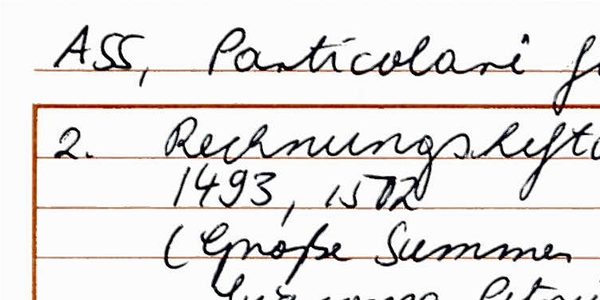 ASS, Particolari
2. Rechnungshefte
1493, 1502
(Große Summen